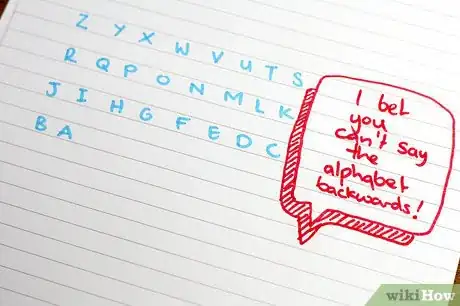 Z Y X W V U T S
R Q P O N M L K
J I H G F E D C
B A
I bet
you
can't say
the
alphabet
backwards!
wikiHow